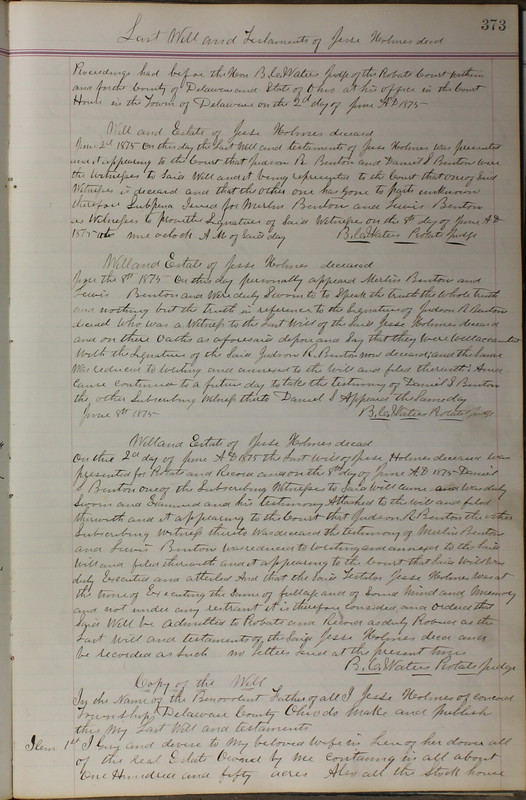 373
Last Will and Testaments of Jesse Holmes decd
Proceedings had before the Hon B. C. Waters Judge of the Probate Court within
and for the County of Delaware and State of Ohio at his office in the Court
House in the Town of Delaware on the 2d day of June AD 1875
Will and Estate of Jesse Holmes deceased
June 2d 1875 On this day the Last Will and testaments of Jesse Holmes was presented
and it appearing to the Court that Judson R Benton and Daniel I Benton were
the Witnesses to Said Will and it being represented to the Court that one of Said
Witnesses is deceasd and that the other one has gone to parts unknown
therefore Subpena Issued for Merlin Benton and Lewis Benton
as Witnesses to prove the Signature of Said Witness on the 8th day of June AD
1875 at nine oclock A.M. of Said day B. C. Waters Probate Judge
Will and Estate of Jesse Holmes deceased
June the 8th 1875 On this day personally appeard Merlin Benton and
Lewis Benton and Were duly Sworn to to Speak the truth the Whole truth
and nothing but the truth in reference to the Signature of Judson R Benton
decead Who was a Witness to the Last Will of the Said Jesse Holmes deceasd
and on there Oaths as aforesaid depose and Say that they were Well accainted
With the Signature of the Said Judson R. Benton now deceasd, and the Same
Was reduced to Writing and annexed to the Will and filed therewith And
Cause continued to a future day to take the testimony of Daniel I Benton
the other Subscribing Witness thereto Daniel I Appears the Same day
June 8th 1875 B. C. Waters Probate Judge
Will and Estate of Jesse Holmes decead
On this 2d day of June AD 1875 the Last Will of Jesse Holmes deceasd was
presented for Probate and Record and on the 8th day of June AD 1875 Daniel
I Benton one of the Subscribing Witnesses to Said Will came and was duly
Sworn and Examined and his testimony Attached to the Will and filed
therewith and it appearing to the Court that Judson R Benton the other
Subscribing Witness thereto Was deceasd the testimony of Merlin Benton
and Lewis Benton was reduced to Writing and annexed to the Said
Will and filed therewith and it appearing to the Court that Said Will was
duly Executed and attested And that the Said Testator Jesse Holmes was at
the time of Executing the Same of full age and of Sound Mind and Memory
and not under any restraint it is therefore considerd and Ordered that
Said Will be admitted to Probate and Record as duly Proven as the
Last Will and testaments of the Said Jesse Holmes decea and
be recorded as Such no letters Isued at the present time
B. C. Waters Probate Judge
Copy of the Will
In the Name of the Benevolent Father of all I Jesse Holmes of Concord
Township Delaware County Ohio do make and publish
this My Last Will and testaments
Item 1st I Give and devise to My beloved Wife in Lieu of her dower all
of the Real Estate Owned by me containing in all about
One Hundred and fifty acres Also all the Stock house